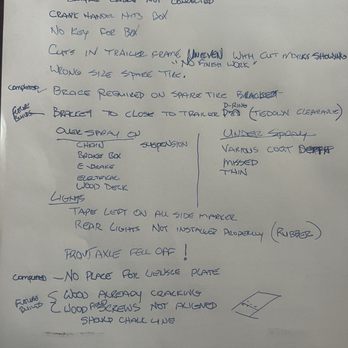 CRANK HANDLE HITS BOX
NO KEY FOR BOX
CUTS IN TRAILER FRAME UNEVEN WITH CUT MARKS SHOWING
"NO FINISH WORK"
WRONG SIZE SPARE TIRE.
COMPLETED - BROKE REQUIRED ON SPARE TIRE BRACKET
FUTURE BUILDS - BRACKET TO CLOSE TO TRAILER D-RING (TIEDOWN CLEARANCE)
OVER SPRAY ON
CHAIN SUSPENSION
BROKE BOX
E-BRAKE
ELECTRICAL
WOOD DECK
UNDER SPRAY
VARIOUS COAT DEPTH
MISSED
THIN
LIGHTS
TAPE LEFT ON ALL SIDE MARKER
REAR LIGHTS NOT INSTALLED PROPERLY (RUBBER)
FRONT AXLE FELL OFF!
COMPLETED - NO PLACE FOR LICENSE PLATE
FUTURE BUILDS { WOOD ALREADY CRACKING
WOOD SCREWS NOT ALIGNED
SHOULD CHALK LINE